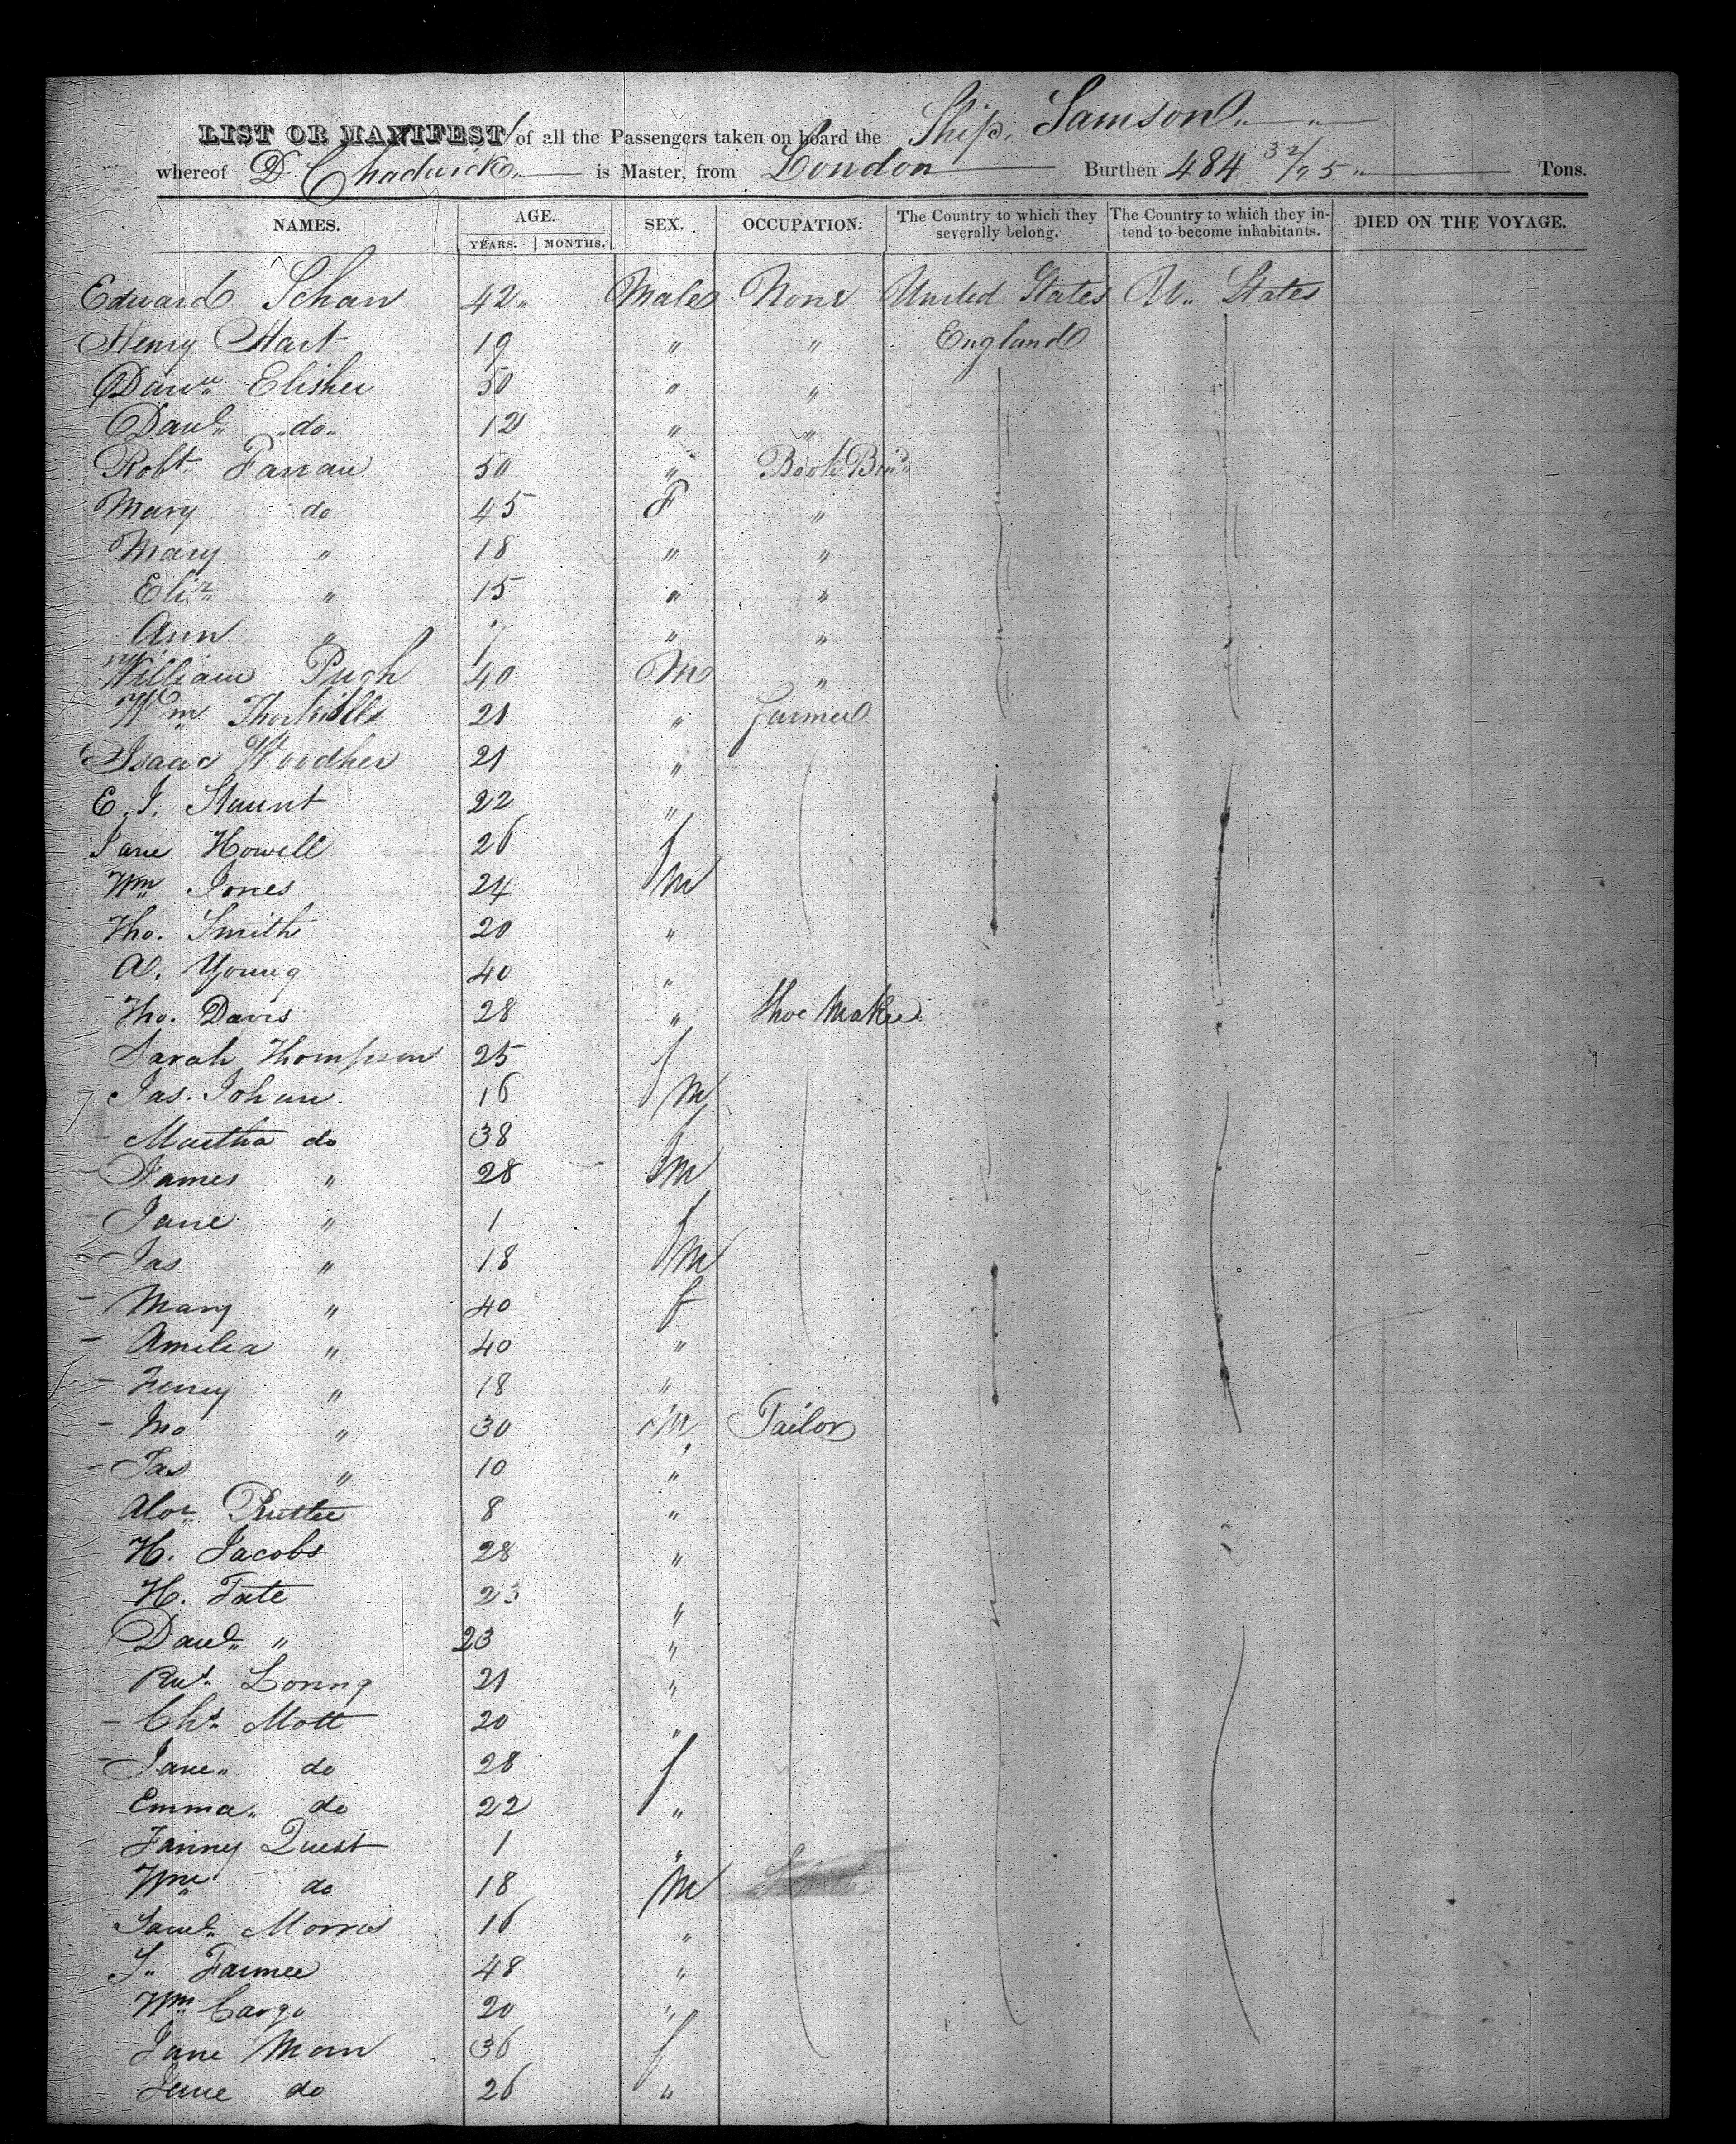 LIST OR MANIFEST of all the Passengers taken on board the Ship Samson
whereof D. Chadwick is Master, from London Burthen 484 32/95 Tons.
NAMES. AGE. YEARS. MONTHS. SEX. OCCUPATION. The Country to which they severally belong. The Country to which they intend to become inhabitants. DIED ON THE VOYAGE.
Edward Schan 42 Male None United States U. States
Henry Hart 19 " " England
Elisher 50 " "
Danl. do 12 " "
Robt. Farrau 50 " Book Bin
Mary do 45 F "
Mary " 18 " "
Eliz " 15 " "
Ann " " "
William Pugh 40 M "
Wm 21 " farmer
Isaac Woodher 21 "
E. J. Staunt 22 "
Jane Howell 26 f
Wm Jones 24 M
Tho. Smith 20 "
A. Young 40 "
Tho. Davis 28 " Shoe Maker
Sarah Thompson 25 f
Jas. Johan 16 M
Martha do 38 f
James " 28 M
Jane " 1 f
Jas " 18 M
Mary " 40 f
Amelia " 40 "
" 18 "
Jno " 30 M Tailor
Jas " 10 "
8 "
H. Jacobs 28 "
H. Tate 23 "
Danl. " 23 "
21 "
Chs. Mott 20 "
Jane do 28 f
Emma do 22 "
Fanny Quest 1 "
Wm do 18 M
Saml. Morris 16 "
Farmer 48 "
Wm Cargo 20 "
Jane Morn 36 f
Jane do 26 "